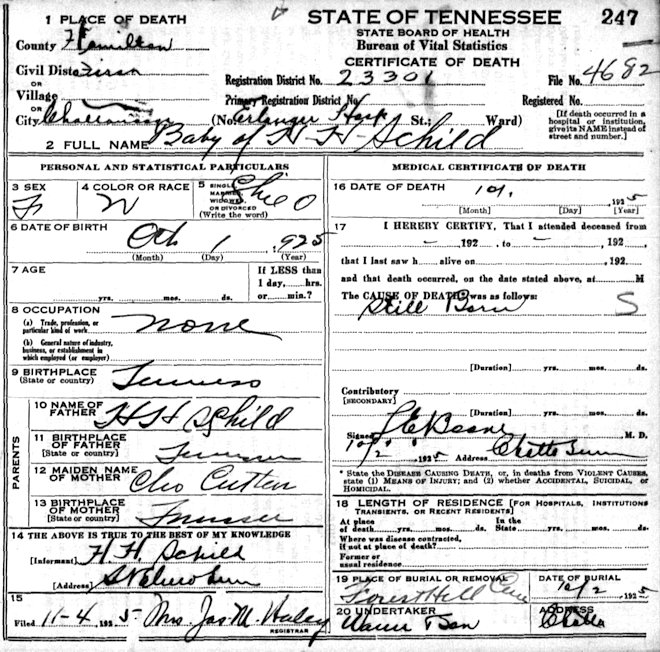 1 PLACE OF DEATH
STATE OF TENNESSEE 247
STATE BOARD OF HEALTH
Bureau of Vital Statistics
CERTIFICATE OF DEATH
County Hamilton
Civil Dist. First
Registration District No. 23301 File No. 4682
Village
Primary Registration District No. Registered No.
City Chattanooga (No. Erlanger Hosp St.; Ward)
[If death occurred in a hospital or institution, give its NAME instead of street and number.]
2 FULL NAME Baby of H H Schild
PERSONAL AND STATISTICAL PARTICULARS
3 SEX F
4 COLOR OR RACE W
5 SINGLE, MARRIED, WIDOWED OR DIVORCED (Write the word) Child
6 DATE OF BIRTH Oct 1, 1925
(Month) (Day) (Year)
7 AGE yrs. mos. ds.
If LESS than 1 day, hrs. or min.?
8 OCCUPATION
(a) Trade, profession, or particular kind of work none
(b) General nature of industry, business, or establishment in which employed (or employer)
9 BIRTHPLACE (State or country)
PARENTS
10 NAME OF FATHER H H Schild
11 BIRTHPLACE OF FATHER (State or country)
12 MAIDEN NAME OF MOTHER Cleo
13 BIRTHPLACE OF MOTHER (State or country)
14 THE ABOVE IS TRUE TO THE BEST OF MY KNOWLEDGE
[Informant] H H Schild
[Address]
15
Filed 11-4 1925 Mrs. Jas. M. Haley
REGISTRAR
MEDICAL CERTIFICATE OF DEATH
16 DATE OF DEATH 10/1, 1925
[Month] [Day] [Year]
17 I HEREBY CERTIFY, That I attended deceased from
- 192 , to - 192 ,
that I last saw h alive on , 192 ,
and that death occurred, on the date stated above, at M
The CAUSE OF DEATH was as follows: S
Still Born
[Duration] yrs. mos. ds.
Contributory
[SECONDARY]
[Duration] yrs. mos. ds.
Signed Boone M. D.
10/2 1925 Address Chatt Tenn
* State the DISEASE CAUSING DEATH, or, in deaths from VIOLENT CAUSES,
state (1) MEANS OF INJURY; and (2) whether ACCIDENTAL, SUICIDAL, or
HOMICIDAL.
18 LENGTH OF RESIDENCE [FOR HOSPITALS, INSTITUTIONS
TRANSIENTS, OR RECENT RESIDENTS]
At place of death yrs. mos. ds. In the State yrs. mos. ds.
Where was disease contracted,
if not at place of death?
Former or
usual residence
19 PLACE OF BURIAL OR REMOVAL Forest Hill Cem
DATE OF BURIAL 10/2 1925
20 UNDERTAKER
ADDRESS Chatta